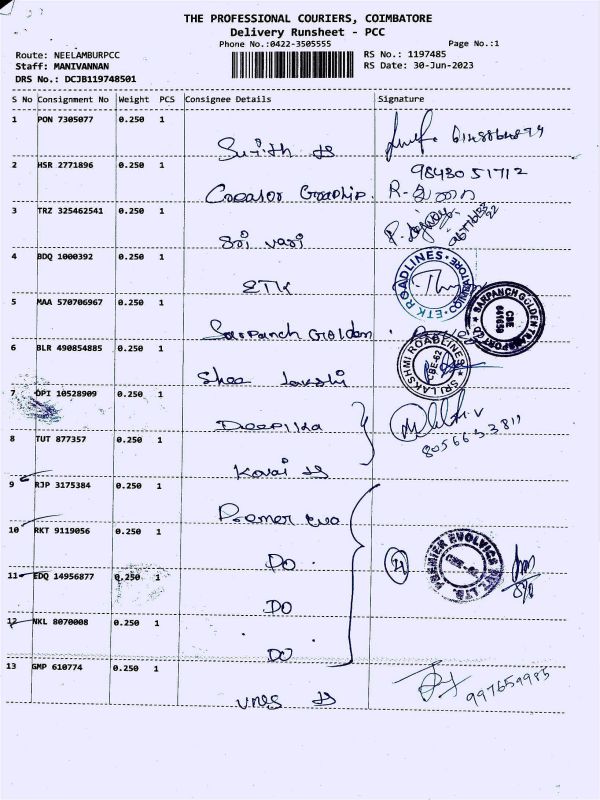 THE PROFESSIONAL COURIERS, COIMBATORE
Delivery Runsheet - PCC
Phone No.:0422-3505555
Page No.:1
Route: NEELAMBURPCC
RS No.: 1197485
Staff: MANIVANNAN
RS Date: 30-Jun-2023
DRS No.: DCJB119748501
S No Consignment No Weight PCS Consignee Details Signature
1 PON 7305077 0.250 1
2 HSR 2771896 0.250 1
98430 51712
Creator Graphip. R.
3 TRZ 325462541 0.250 1
Sri vari
4 BDQ 1000392 0.250 1
ETK
ETK ROADLINES COIMBATORE
5 MAA 570706967 0.250 1
Sarpanch Golden
SARPANCH GOLDEN TRANSPORT CO CBE 641659
6 BLR 490854885 0.250 1
Shee
SRI LAKSHMI ROADLINES CBE-62
7 DPI 10528909 0.250 1
Deepika
8 TUT 877357 0.250 1
8056633811
Kovai
9 RJP 3175384 0.250 1
Premer Evo
10 RKT 9119056 0.250 1
DO
PREMIER EVOLVICS PVT. LTD.
11 EDQ 14956877 0.250 1
DO
12 NKL 8070008 0.250 1
DO
13 GMP 610774 0.250 1
997659985